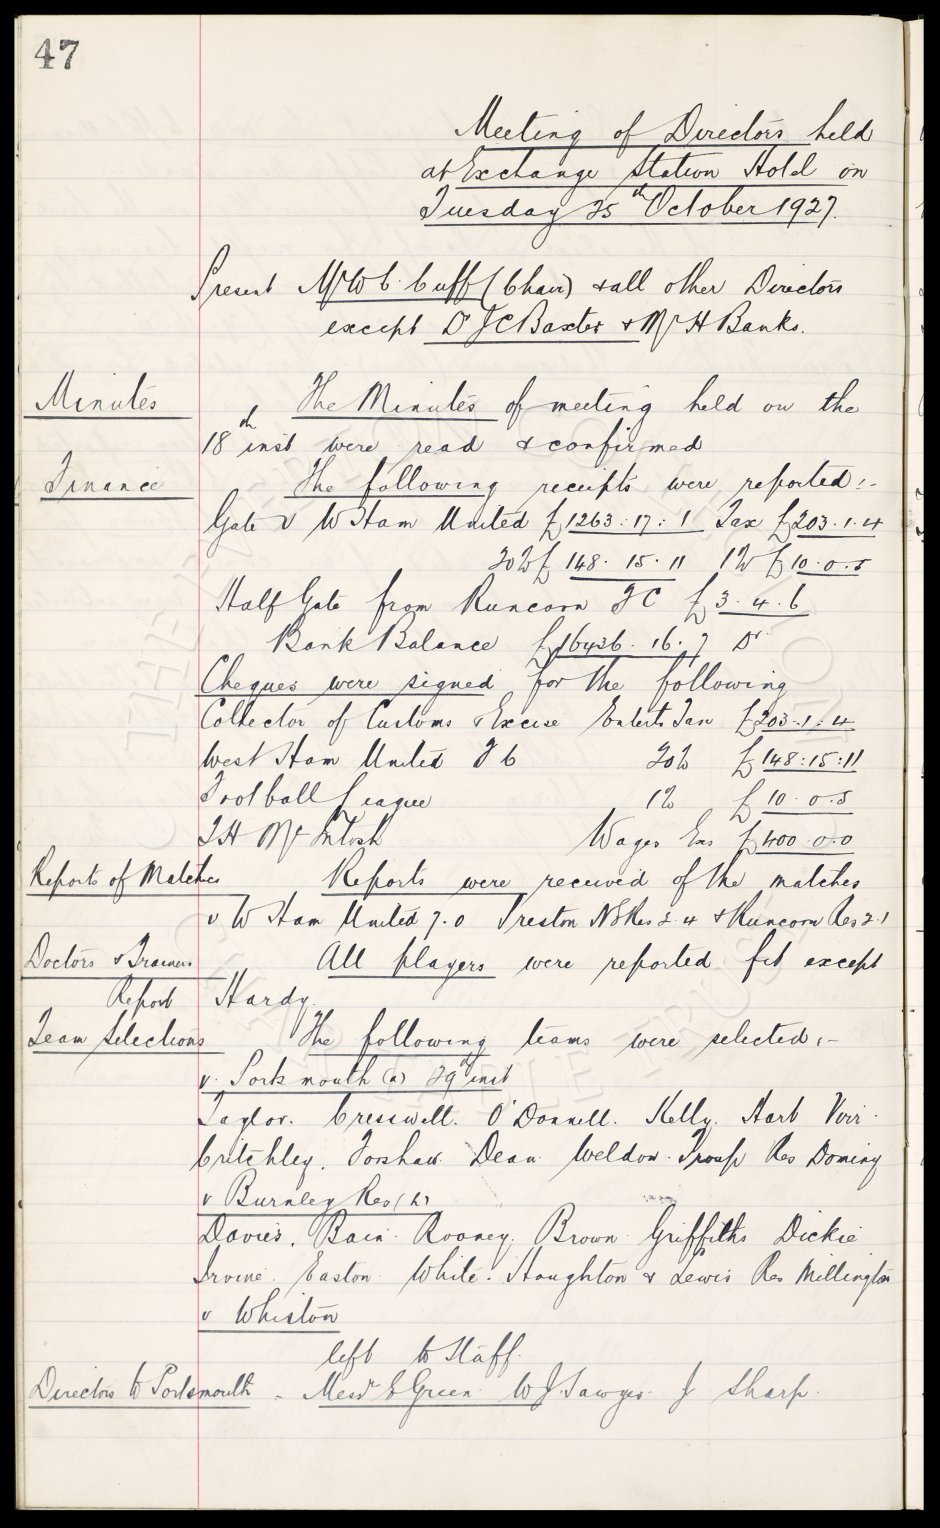 47
Meeting of Directors held
at Exchange Station Hotel on
Tuesday 25th October 1927.
Present Mr W C Cuff (Chair) & all other Directors
except Dr J C Baxter & Mr H Banks.
Minutes The Minutes of meeting held on the
18th inst were read & confirmed
Finance The following receipts were reported :-
Gate v W Ham United £1263:17:1 Tax £203.1.4
20% £148.15.11 1% £10.0.5
Half Gate from Runcorn F C £3.4.6
Bank Balance £16436.16.7 Dr
Cheques were signed for the following
Collector of Customs & Excise Enterts Tax £203.1.4
West Ham United F C 20% £148:15:11
Football League 1% £10.0.5
T H McIntosh Wages Exs £400.0.0
Reports of Matches Reports were received of the matches
v W Ham United 7.0 Preston N E Res 2.4 & Runcorn Res 2.1
Doctors & Trainers All players were reported fit except
Report Hardy.
Team Selections The following teams were selected :-
v. Portsmouth (a) 29th inst
Taylor. Cresswell. O'Donnell. Kelly. Hart Virr.
Critchley. Forshaw. Dean. Weldon. Troup Res Dominy
v Burnley Res (h)
Davies. Bain. Rooney. Brown. Griffiths Dickie
Irvine. Easton. White. Houghton & Lewis Res Millington
v Whiston
left to Staff.
Directors to Portsmouth - Messrs E Green. W J Sawyer. J Sharp.